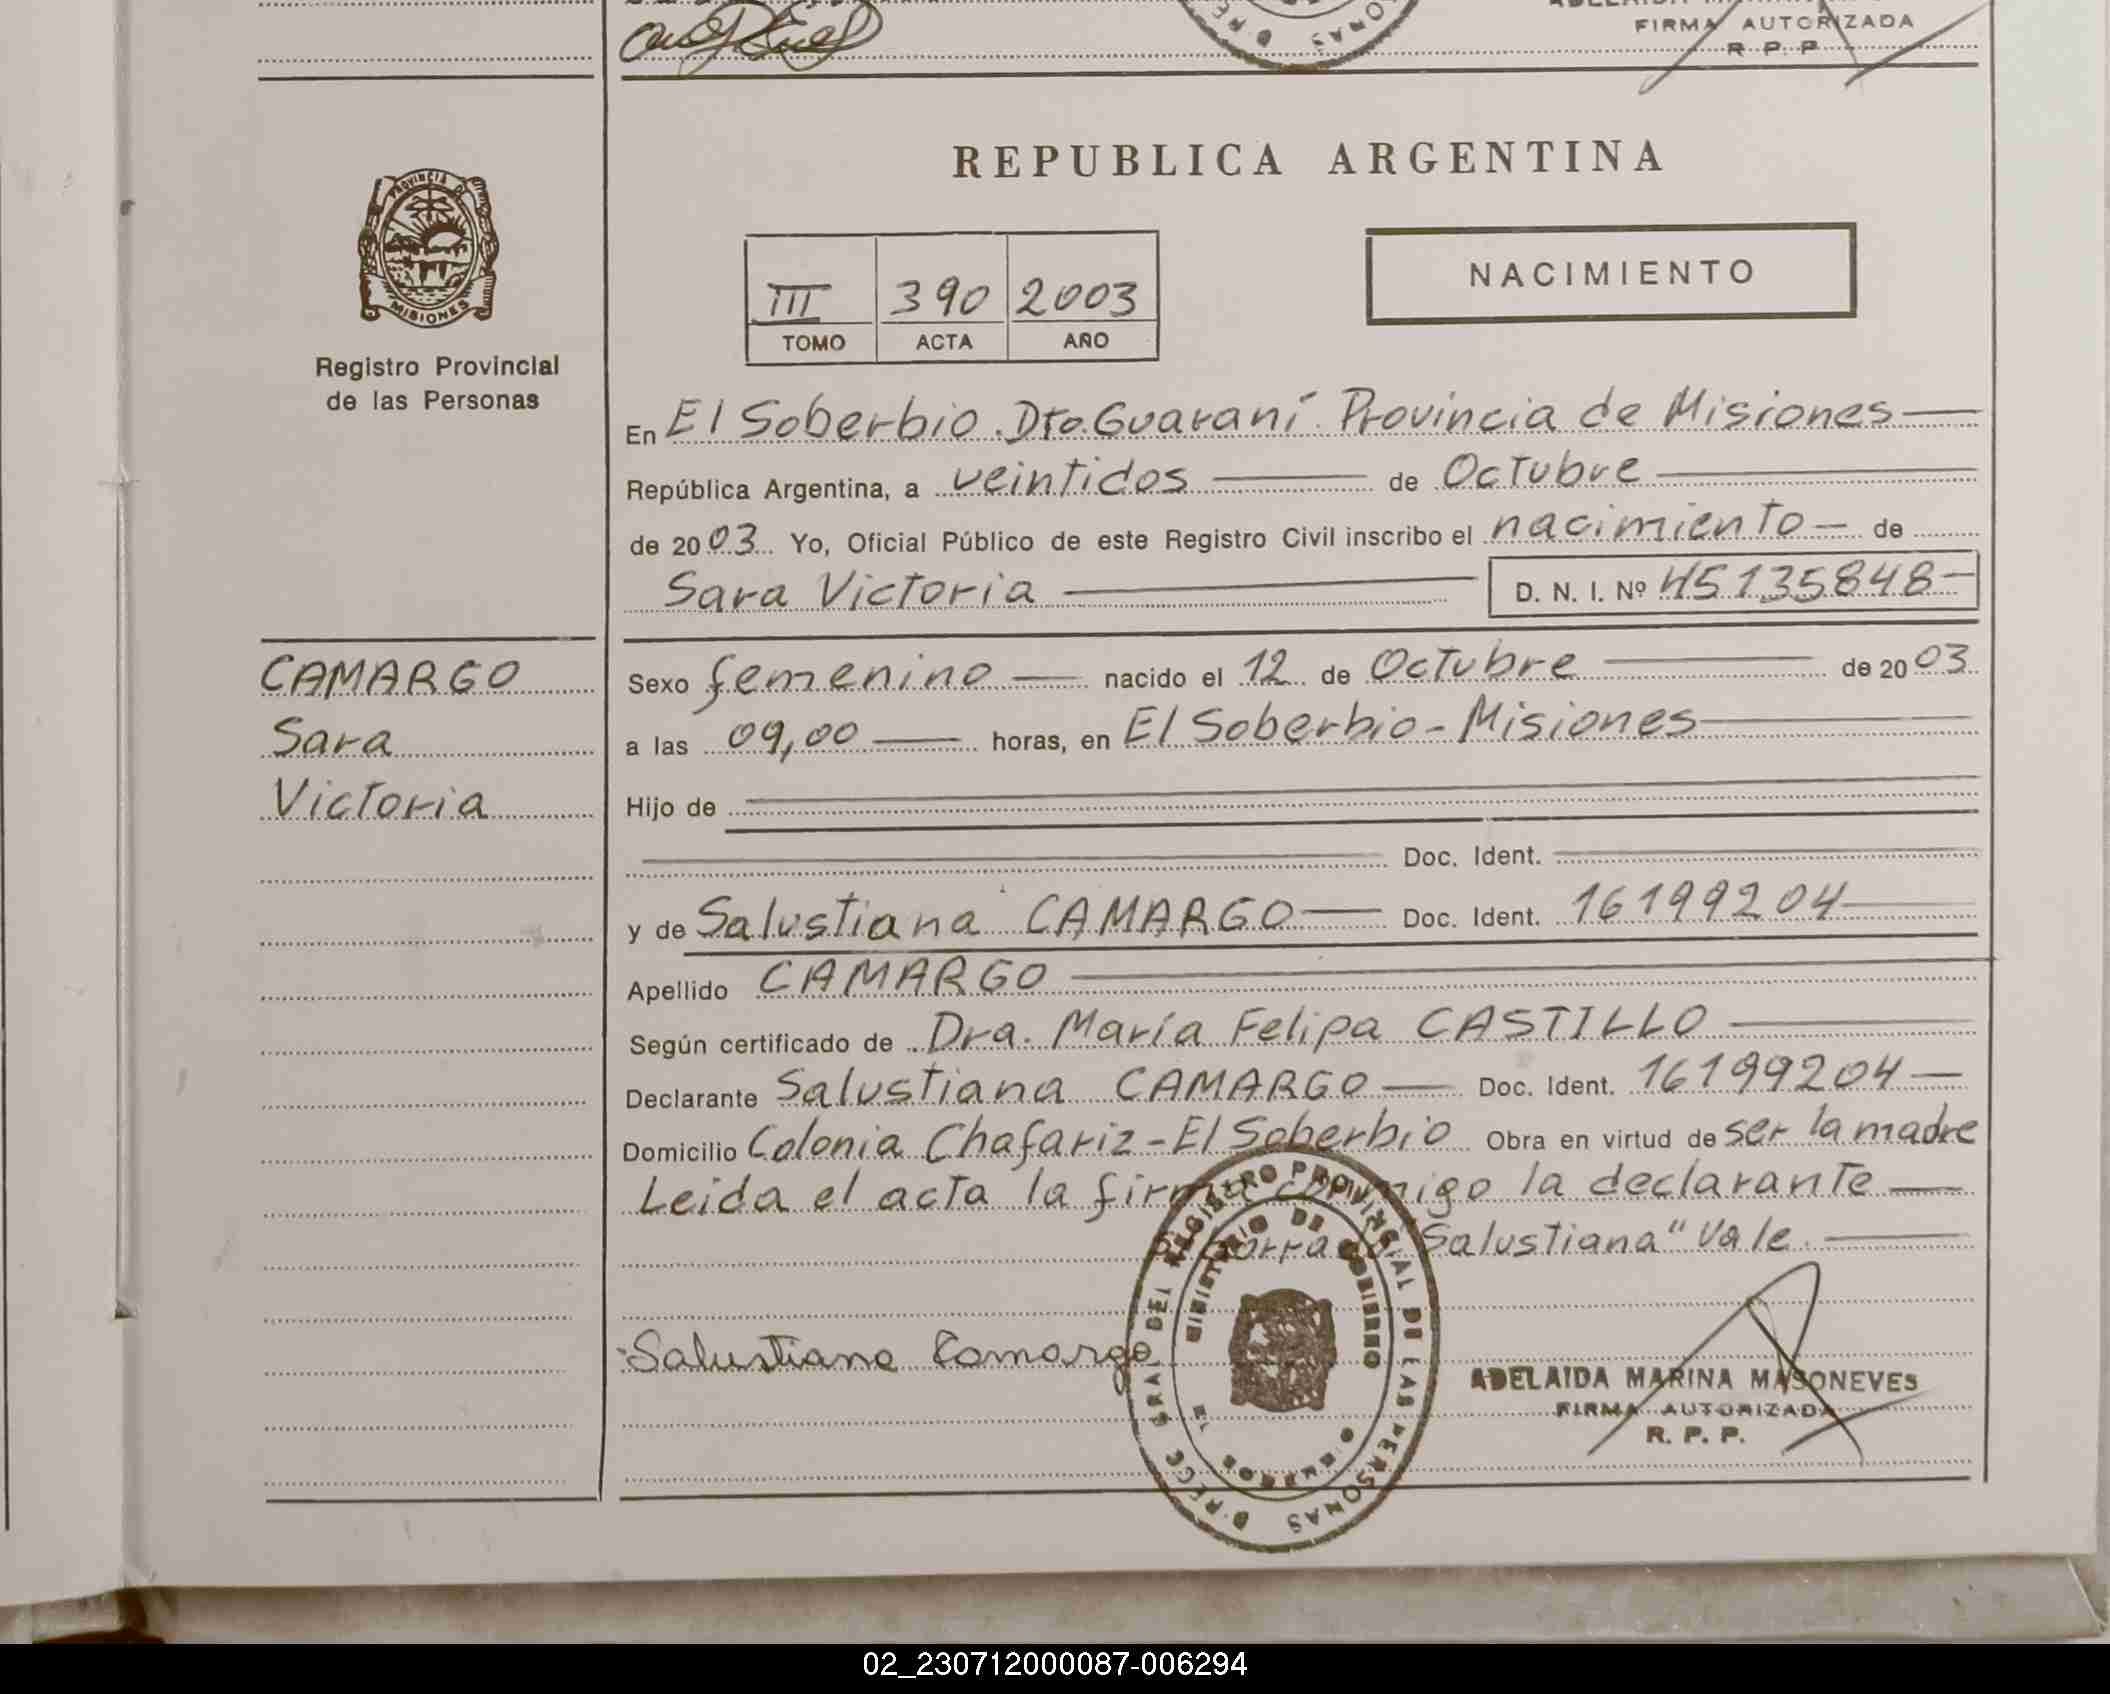 FIRMA AUTORIZADA
R. P. P.
PROVINCIA DE
MISIONES
Registro Provincial
de las Personas
REPUBLICA ARGENTINA
III 390 2003
TOMO ACTA AÑO
NACIMIENTO
En El Soberbio. Dto. Guaraní. Provincia de Misiones
República Argentina, a veintidos de Octubre
de 2003 Yo, Oficial Público de este Registro Civil inscribo el nacimiento de
Sara Victoria D. N. I. Nº 45135848
CAMARGO
Sara
Victoria
Sexo femenino nacido el 12 de Octubre de 2003
a las 09,00 horas, en El Soberbio - Misiones
Hijo de
Doc. Ident.
y de Salustiana CAMARGO Doc. Ident. 16199204
Apellido CAMARGO
Según certificado de Dra. María Felipa CASTILLO
Declarante Salustiana CAMARGO Doc. Ident. 16199204
Domicilio Colonia Chafariz - El Soberbio Obra en virtud de ser la madre
Leida el acta la firma conmigo la declarante
"Salustiana" Vale.
Salustiana Camargo
REGISTRO PROVINCIAL DE LAS PERSONAS
MINISTERIO DE GOBIERNO
ADELAIDA MARINA MASONEVES
FIRMA AUTORIZADA
R. P. P.
02_230712000087-006294